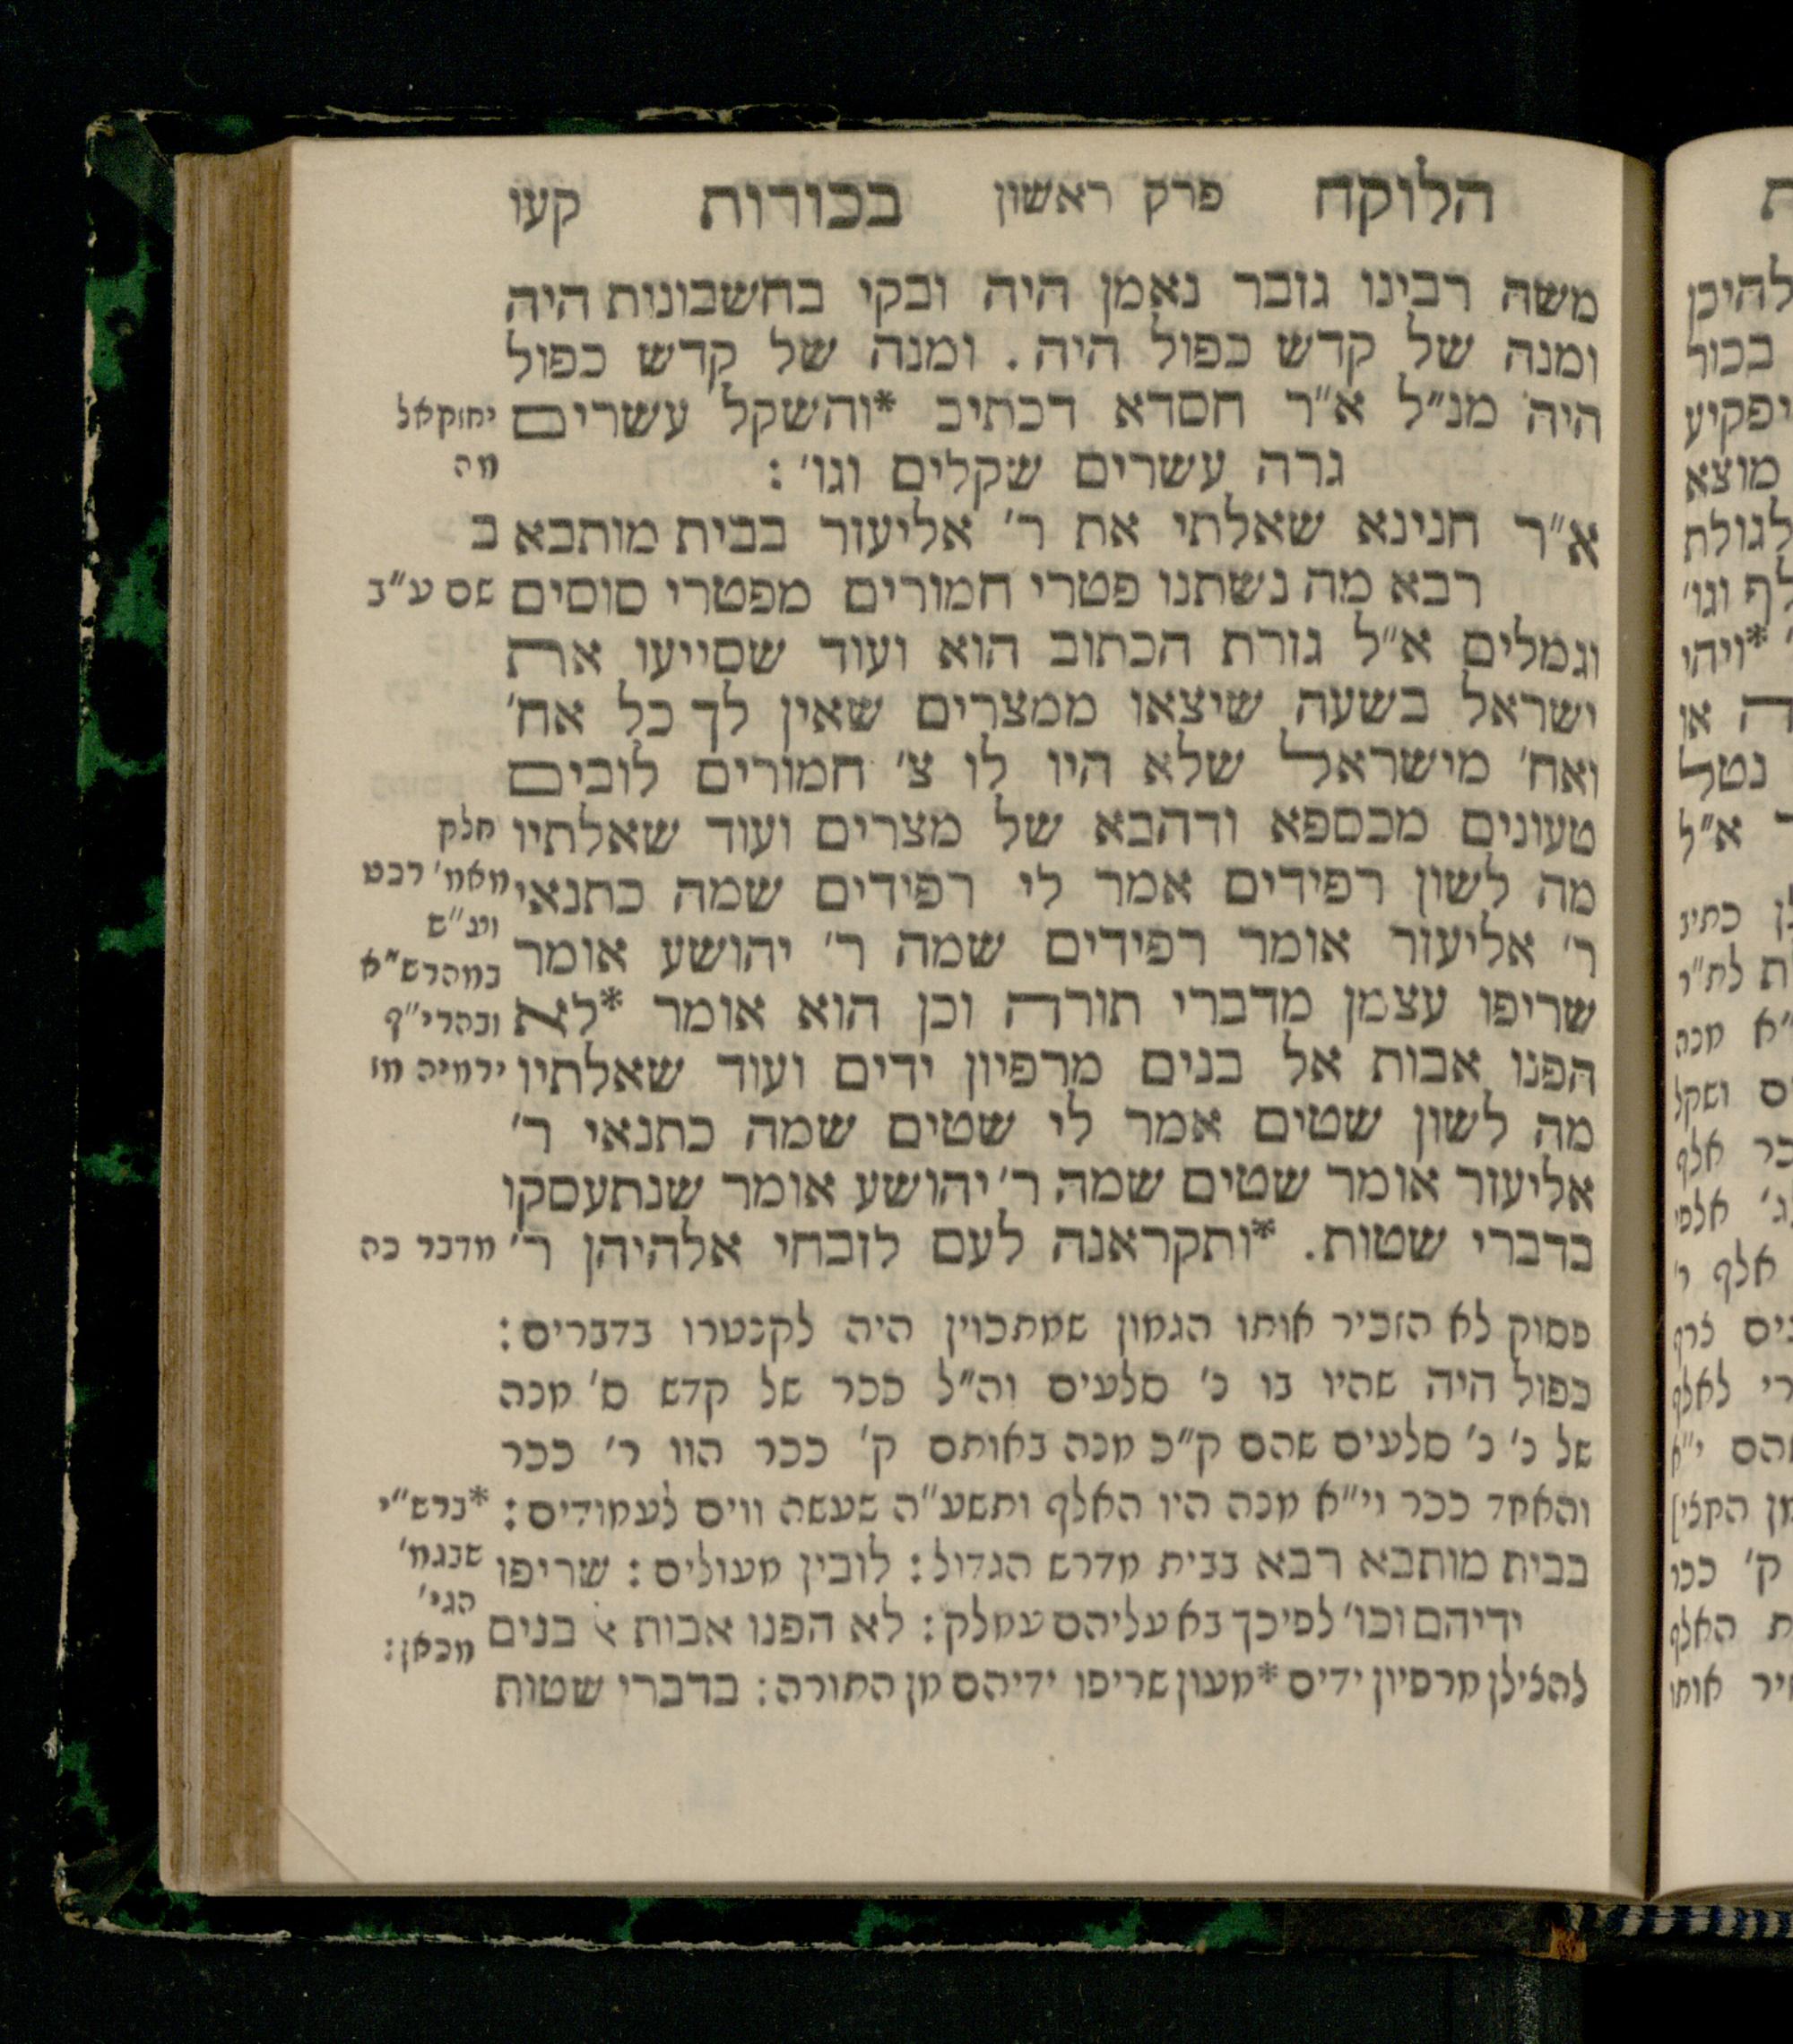 הלוקח פרק ראשון בכורות קעו
משה רבינו גזבר נאמן היה ובקי בחשבונות היה
ומנה של קדש כפול היה. ומנה של קדש כפול
היה מנ״ל א״ר חסדא דכתיב *והשקל עשרים
גרה עשרים שקלים וגו׳:
א״ר חנינא שאלתי את ר׳ אליעזר בבית מותבא
רבא מה נשתנו פטרי חמורים מפטרי סוסים
וגמלים א״ל גזרת הכתוב הוא ועוד שסייעו את
ישראל בשעה שיצאו ממצרים שאין לך כל אח׳
ואח׳ מישראל שלא היו לו צ׳ חמורים לובים
טעונים מכספא ודהבא של מצרים ועוד שאלתיו
מה לשון רפידים אמר לי רפידים שמה כתנאי
ר׳ אליעזר אומר רפידים שמה ר׳ יהושע אומר
שריפו עצמן מדברי תורה וכן הוא אומר *לא
הפנו אבות אל בנים מרפיון ידים ועוד שאלתיו
מה לשון שטים אמר לי שטים שמה כתנאי ר׳
אליעזר אומר שטים שמה ר׳ יהושע אומר שנתעסקו
בדברי שטות. *ותקראנה לעם לזבחי אלהיהן ר׳
יחזקאל
מה
ב
שם ע״ב
חלק
מאמ׳ רבט
וע״ש
במהרש״א
ובהרי״ף
ירמיה מז
מדבר כה
פסוק לא הזכיר אותו הגמון שמתכוין היה לקנטרו בדברים:
כפול היה שהיו בו כ׳ סלעים וה״ל ככר של קדש ס׳ מנה
של כ׳ כ׳ סלעים שהם ק״כ מנה באותם ק׳ ככר הוו ר׳ ככר
והאחד ככר וי״א מנה היו האלף ותשע״ה שעשה ווים לעמודים:
בבית מותבא רבא בבית מדרש הגדול: לובין מעולים: שריפו
ידיהם וכו׳ לפיכך בא עליהם עמלק: לא הפנו אבות בנים
להלילן מרפיון ידים *מעון שריפו ידיהם מן התורה: בדברי שטות
*ברש״י
שבגמ׳
הגי׳
מכאן: